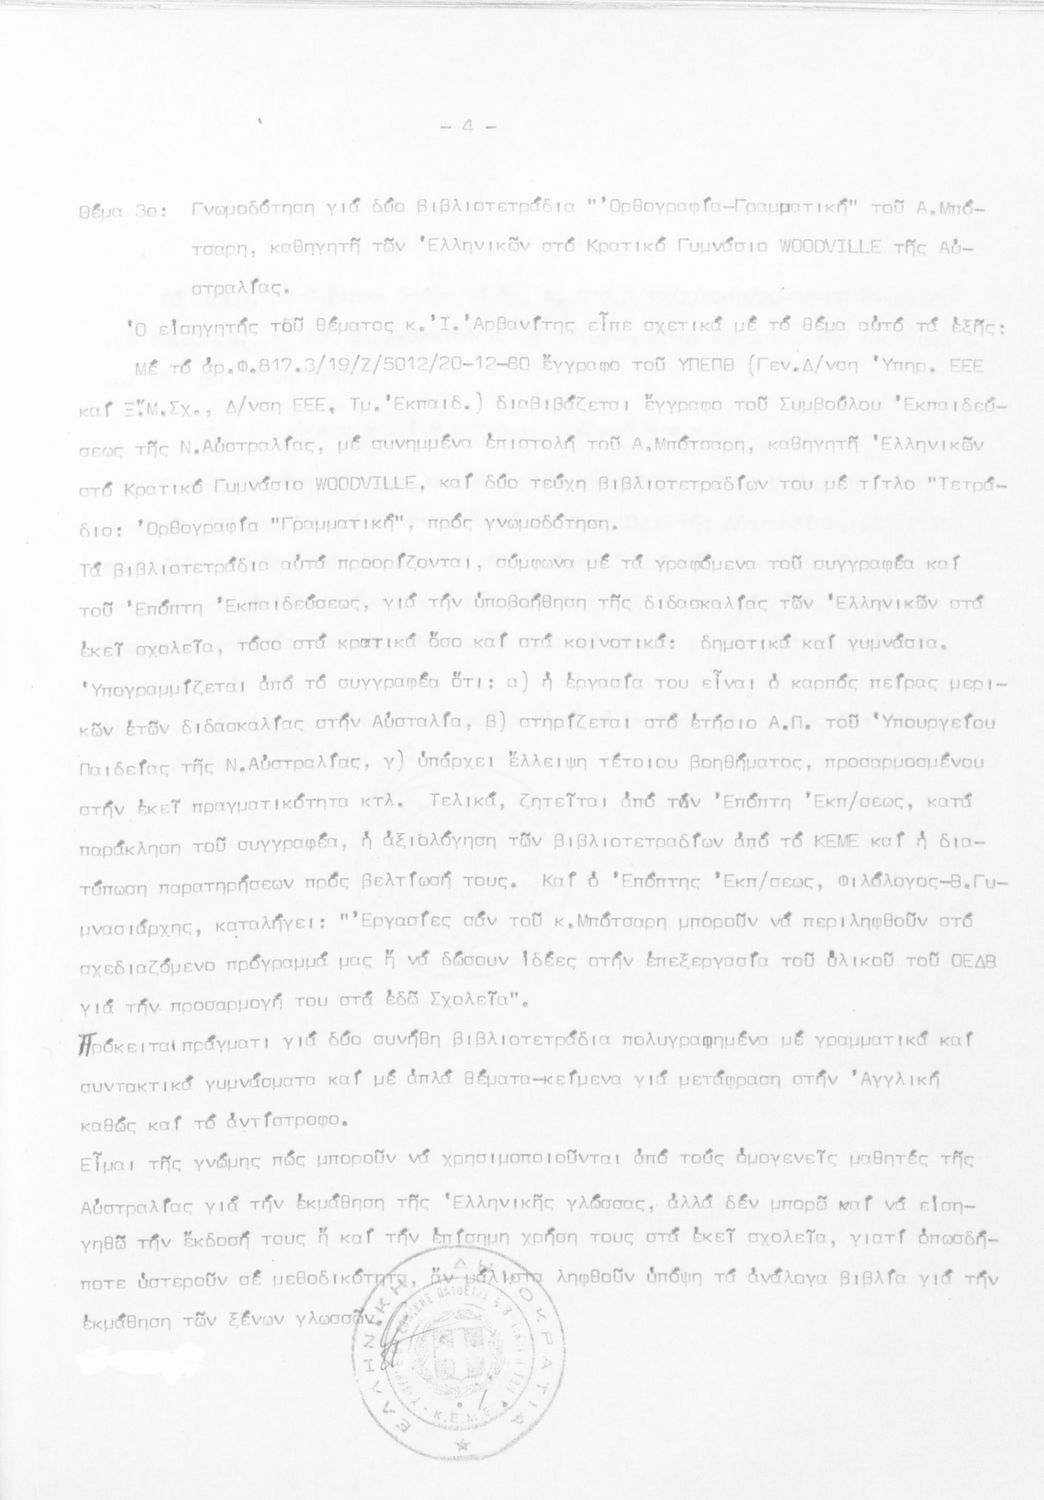 - 4 -
Θέμα 3ο: Γνωμοδότηση γιά δύο βιβλιοτετράδια "Ὀρθογραφία-Γραμματική" τοῦ Α.Μπό-
τσαρη, καθηγητῆ τῶν Ἑλληνικῶν στό Κρατικό Γυμνάσιο WOODVILLE τῆς Αὐ-
στραλίας.
Ὁ εἰσηγητής τοῦ θέματος κ.Ἰ.Ἀρβανίτης εἶπε σχετικά μέ τό θέμα αὐτό τά ἑξῆς:
Μέ τό ἀρ.Φ.817.3/19/Ζ/5012/20-12-80 ἔγγραφο τοῦ ΥΠΕΠΘ (Γεν.Δ/νση Ὑπηρ. ΕΕΕ
καί Ξ.Μ.Σχ., Δ/νση ΕΕΕ, Τμ.Ἐκπαιδ.) διαβιβάζεται ἔγγραφο τοῦ Συμβούλου Ἐκπαιδεύ-
σεως τῆς Ν.Αὐστραλίας, μέ συνημμένα ἐπιστολή τοῦ Α.Μπότσαρη, καθηγητῆ Ἑλληνικῶν
στό Κρατικό Γυμνάσιο WOODVILLE, καί δύο τεύχη βιβλιοτετραδίων του μέ τίτλο "Τετρά-
διο: Ὀρθογραφία "Γραμματική", πρός γνωμοδότηση.
Τά βιβλιοτετράδια αὐτά προορίζονται, σύμφωνα μέ τά γραφόμενα τοῦ συγγραφέα καί
τοῦ Ἐπόπτη Ἐκπαιδεύσεως, γιά τήν ὑποβοήθηση τῆς διδασκαλίας τῶν Ἑλληνικῶν στά
ἐκεῖ σχολεῖα, τόσο στά κρατικά ὅσο καί στά κοινοτικά: δημοτικά καί γυμνάσια.
Ὑπογραμμίζεται ἀπό τό συγγραφέα ὅτι: α) ἡ ἐργασία του εἶναι ὁ καρπός πείρας μερι-
κῶν ἐτῶν διδασκαλίας στήν Αὐσταλία, β) στηρίζεται στό ἐτήσιο Α.Π. τοῦ Ὑπουργείου
Παιδείας τῆς Ν.Αὐστραλίας, γ) ὑπάρχει ἔλλειψη τέτοιου βοηθήματος, προσαρμοσμένου
στήν ἐκεῖ πραγματικότητα κτλ. Τελικά, ζητεῖται ἀπό τόν Ἐπόπτη Ἐκπ/σεως, κατά
παράκληση τοῦ συγγραφέα, ἡ ἀξιολόγηση τῶν βιβλιοτετραδίων ἀπό τό ΚΕΜΕ καί ἡ δια-
τύπωση παρατηρήσεων πρός βελτίωσή τους. Καί ὁ Ἐπόπτης Ἐκπ/σεως, Φιλόλογος-Β.Γυ-
μνασιάρχης, καταλήγει: "Ἐργασίες σάν τοῦ κ.Μπότσαρη μποροῦν νά περιληφθοῦν στό
σχεδιαζόμενο πρόγραμμά μας ἤ νά δώσουν ἰδέες στήν ἐπεξεργασία τοῦ ὑλικοῦ τοῦ ΟΕΔΒ
γιά τήν προσαρμογή του στά ἐδῶ Σχολεῖα".
Πρόκειται πράγματι γιά δύο συνήθη βιβλιοτετράδια πολυγραφημένα μέ γραμματικά καί
συντακτικά γυμνάσματα καί μέ ἁπλά θέματα-κείμενα γιά μετάφραση στήν Ἀγγλική
καθώς καί τό ἀντίστροφο.
Εἶμαι τῆς γνώμης πώς μποροῦν νά χρησιμοποιοῦνται ἀπό τούς ὁμογενεῖς μαθητές τῆς
Αὐστραλίας γιά τήν ἐκμάθηση τῆς Ἑλληνικῆς γλώσσας, ἀλλά δέν μπορῶ καί νά εἰση-
γηθῶ τήν ἔκδοσή τους ἤ καί τήν ἐπίσημη χρήση τους στά ἐκεῖ σχολεῖα, γιατί ὁπωσδή-
ποτε ὑστεροῦν σέ μεθοδικότητα, ἄν μάλιστα ληφθοῦν ὑπόψη τά ἀνάλογα βιβλία γιά τήν
ἐκμάθηση τῶν ξένων γλωσσῶν.
ΕΛΛΗΝΙΚΗ ΔΗΜΟΚΡΑΤΙΑ
Κ.Ε.Μ.Ε.